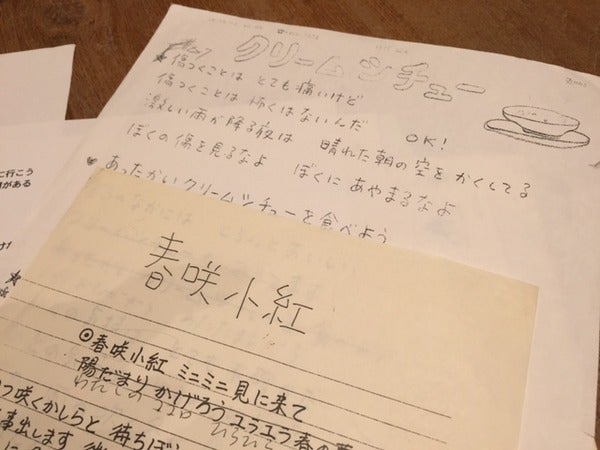 クリームシチュー
★傷つくことは とても痛いけど
傷つくことは 怖くはないんだ OK!
激しい雨が降る夜は 晴れた朝の空を かくしてる
ぼくの傷を見るなよ ぼくに あやまるなよ
あったかい クリームシチューを食べよう
に行こう
がある
春咲小紅
◎春咲小紅 ミニミニ 見に来て
陽だまり かげろう ユラユラ 春の
つ咲くかしらと 待ちぼ
事出します